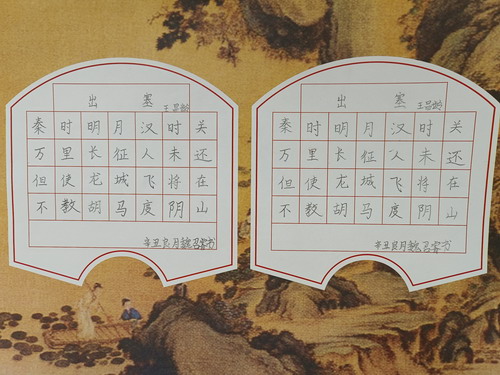 出塞
王昌龄
秦时明月汉时关
万里长征人未还
但使龙城飞将在
不教胡马度阴山
辛丑良月魏召睿书
出塞
王昌龄
秦时明月汉时关
万里长征人未还
但使龙城飞将在
不教胡马度阴山
辛丑良月魏召睿书